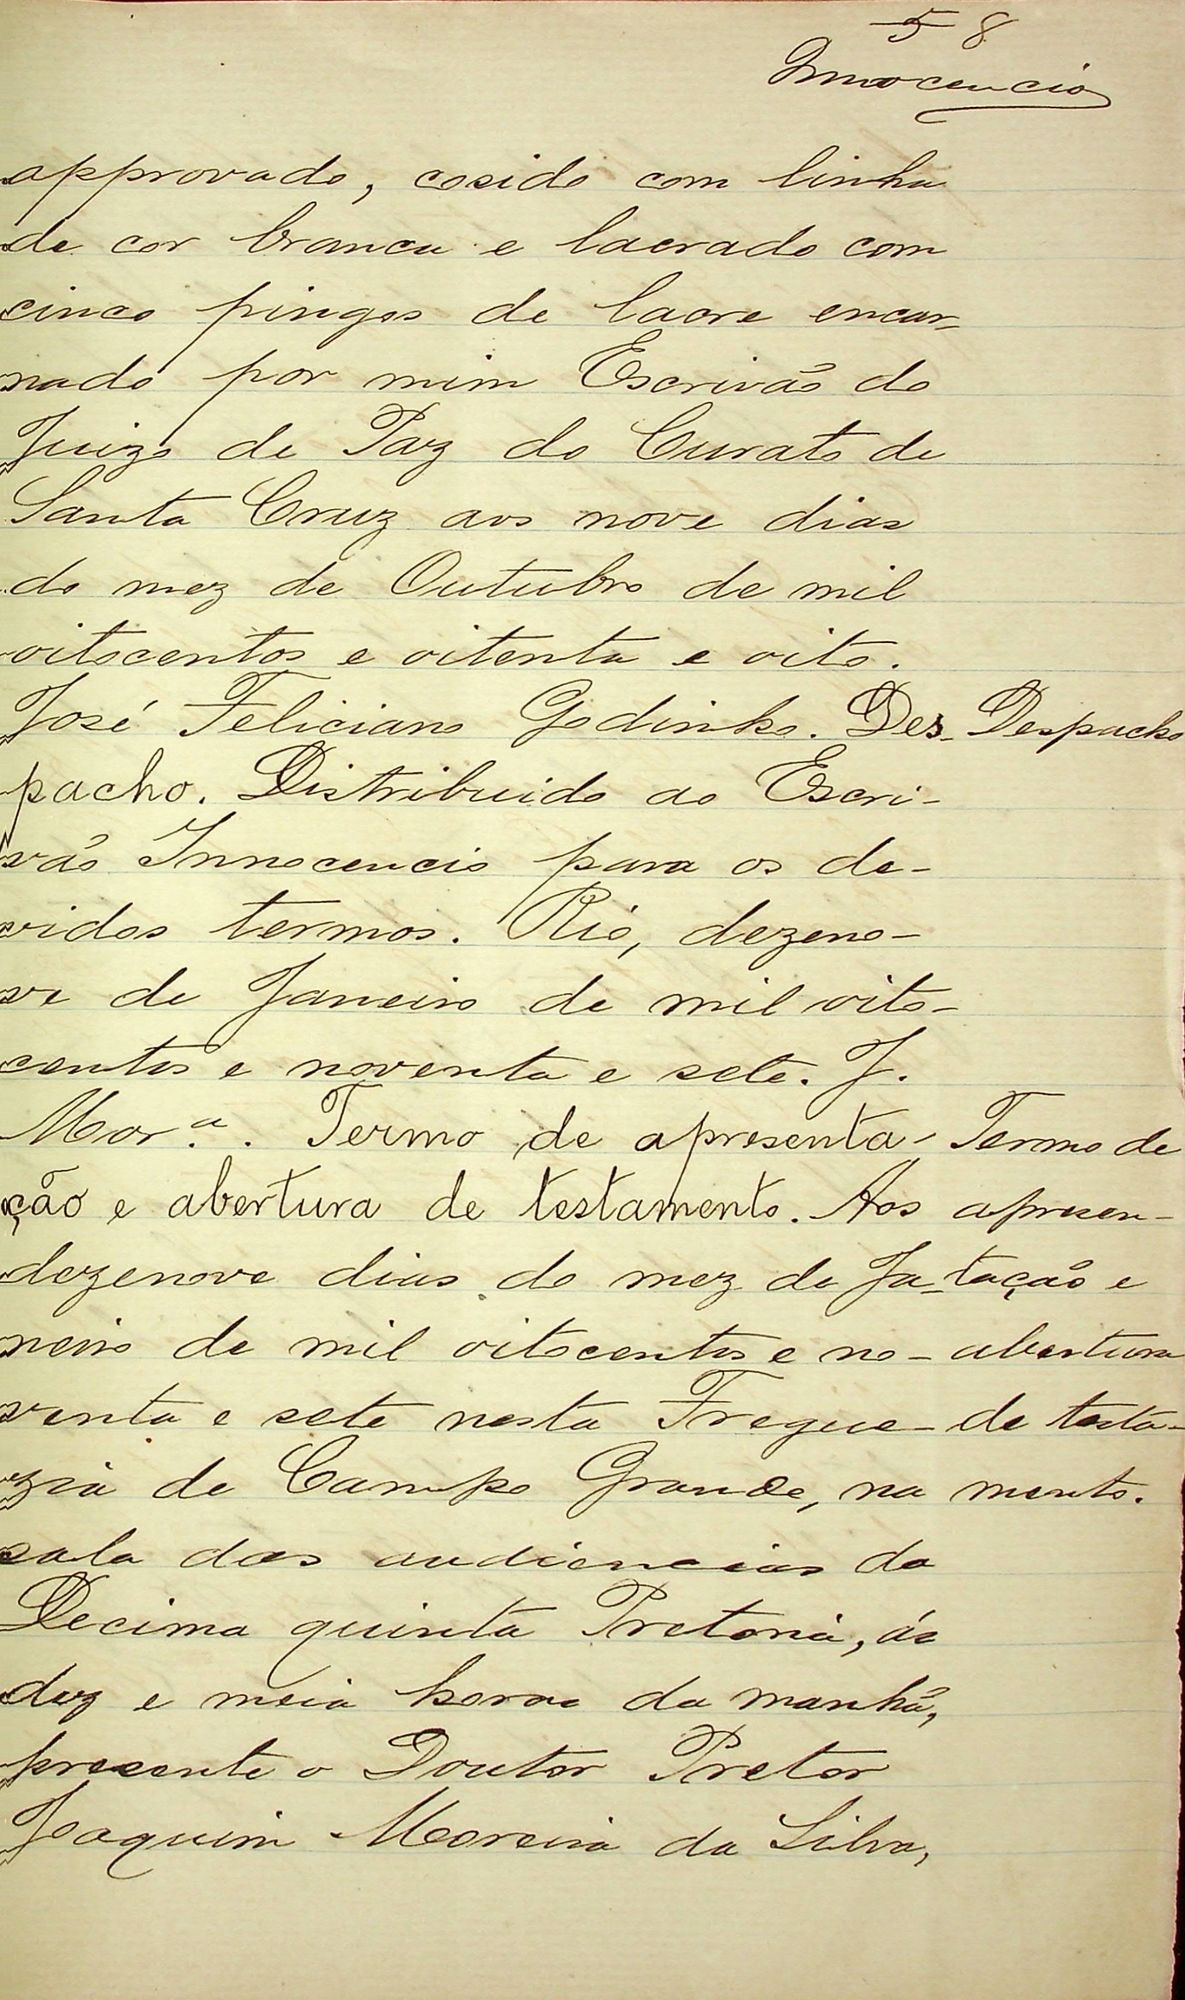 58
Innocencio
approvado, cosido com linha
de cor branca e lacrado com
cinco pingos de lacre encar-
nado por mim Escrivão do
Juizo de Paz do Curato de
Santa Cruz aos nove dias
do mez de Outubro de mil
oitocentos e oitenta e oito.
José Feliciano Godinho. Des-
Despacho
pacho. Distribuido ao Escri-
vão Innocencio para os de-
vidos termos. Rio, dezeno-
ve de Janeiro de mil oito-
centos e noventa e sete. J.
Mor.ª. Termo de apresenta-
ção e abertura de testamento. Aos
dezenove dias do mez de Ja-
neiro de mil oitocentos e no-
venta e sete nesta Fregue-
zia de Campo Grande, na
Termo de
apresen-
tação e
abertura
de testa-
mento.
sala das audiencias da
Decima quinta Pretoria, ás
dez e meia horas da manhã,
presente o Doutor Pretor
Joaquim Moreira da Silva,